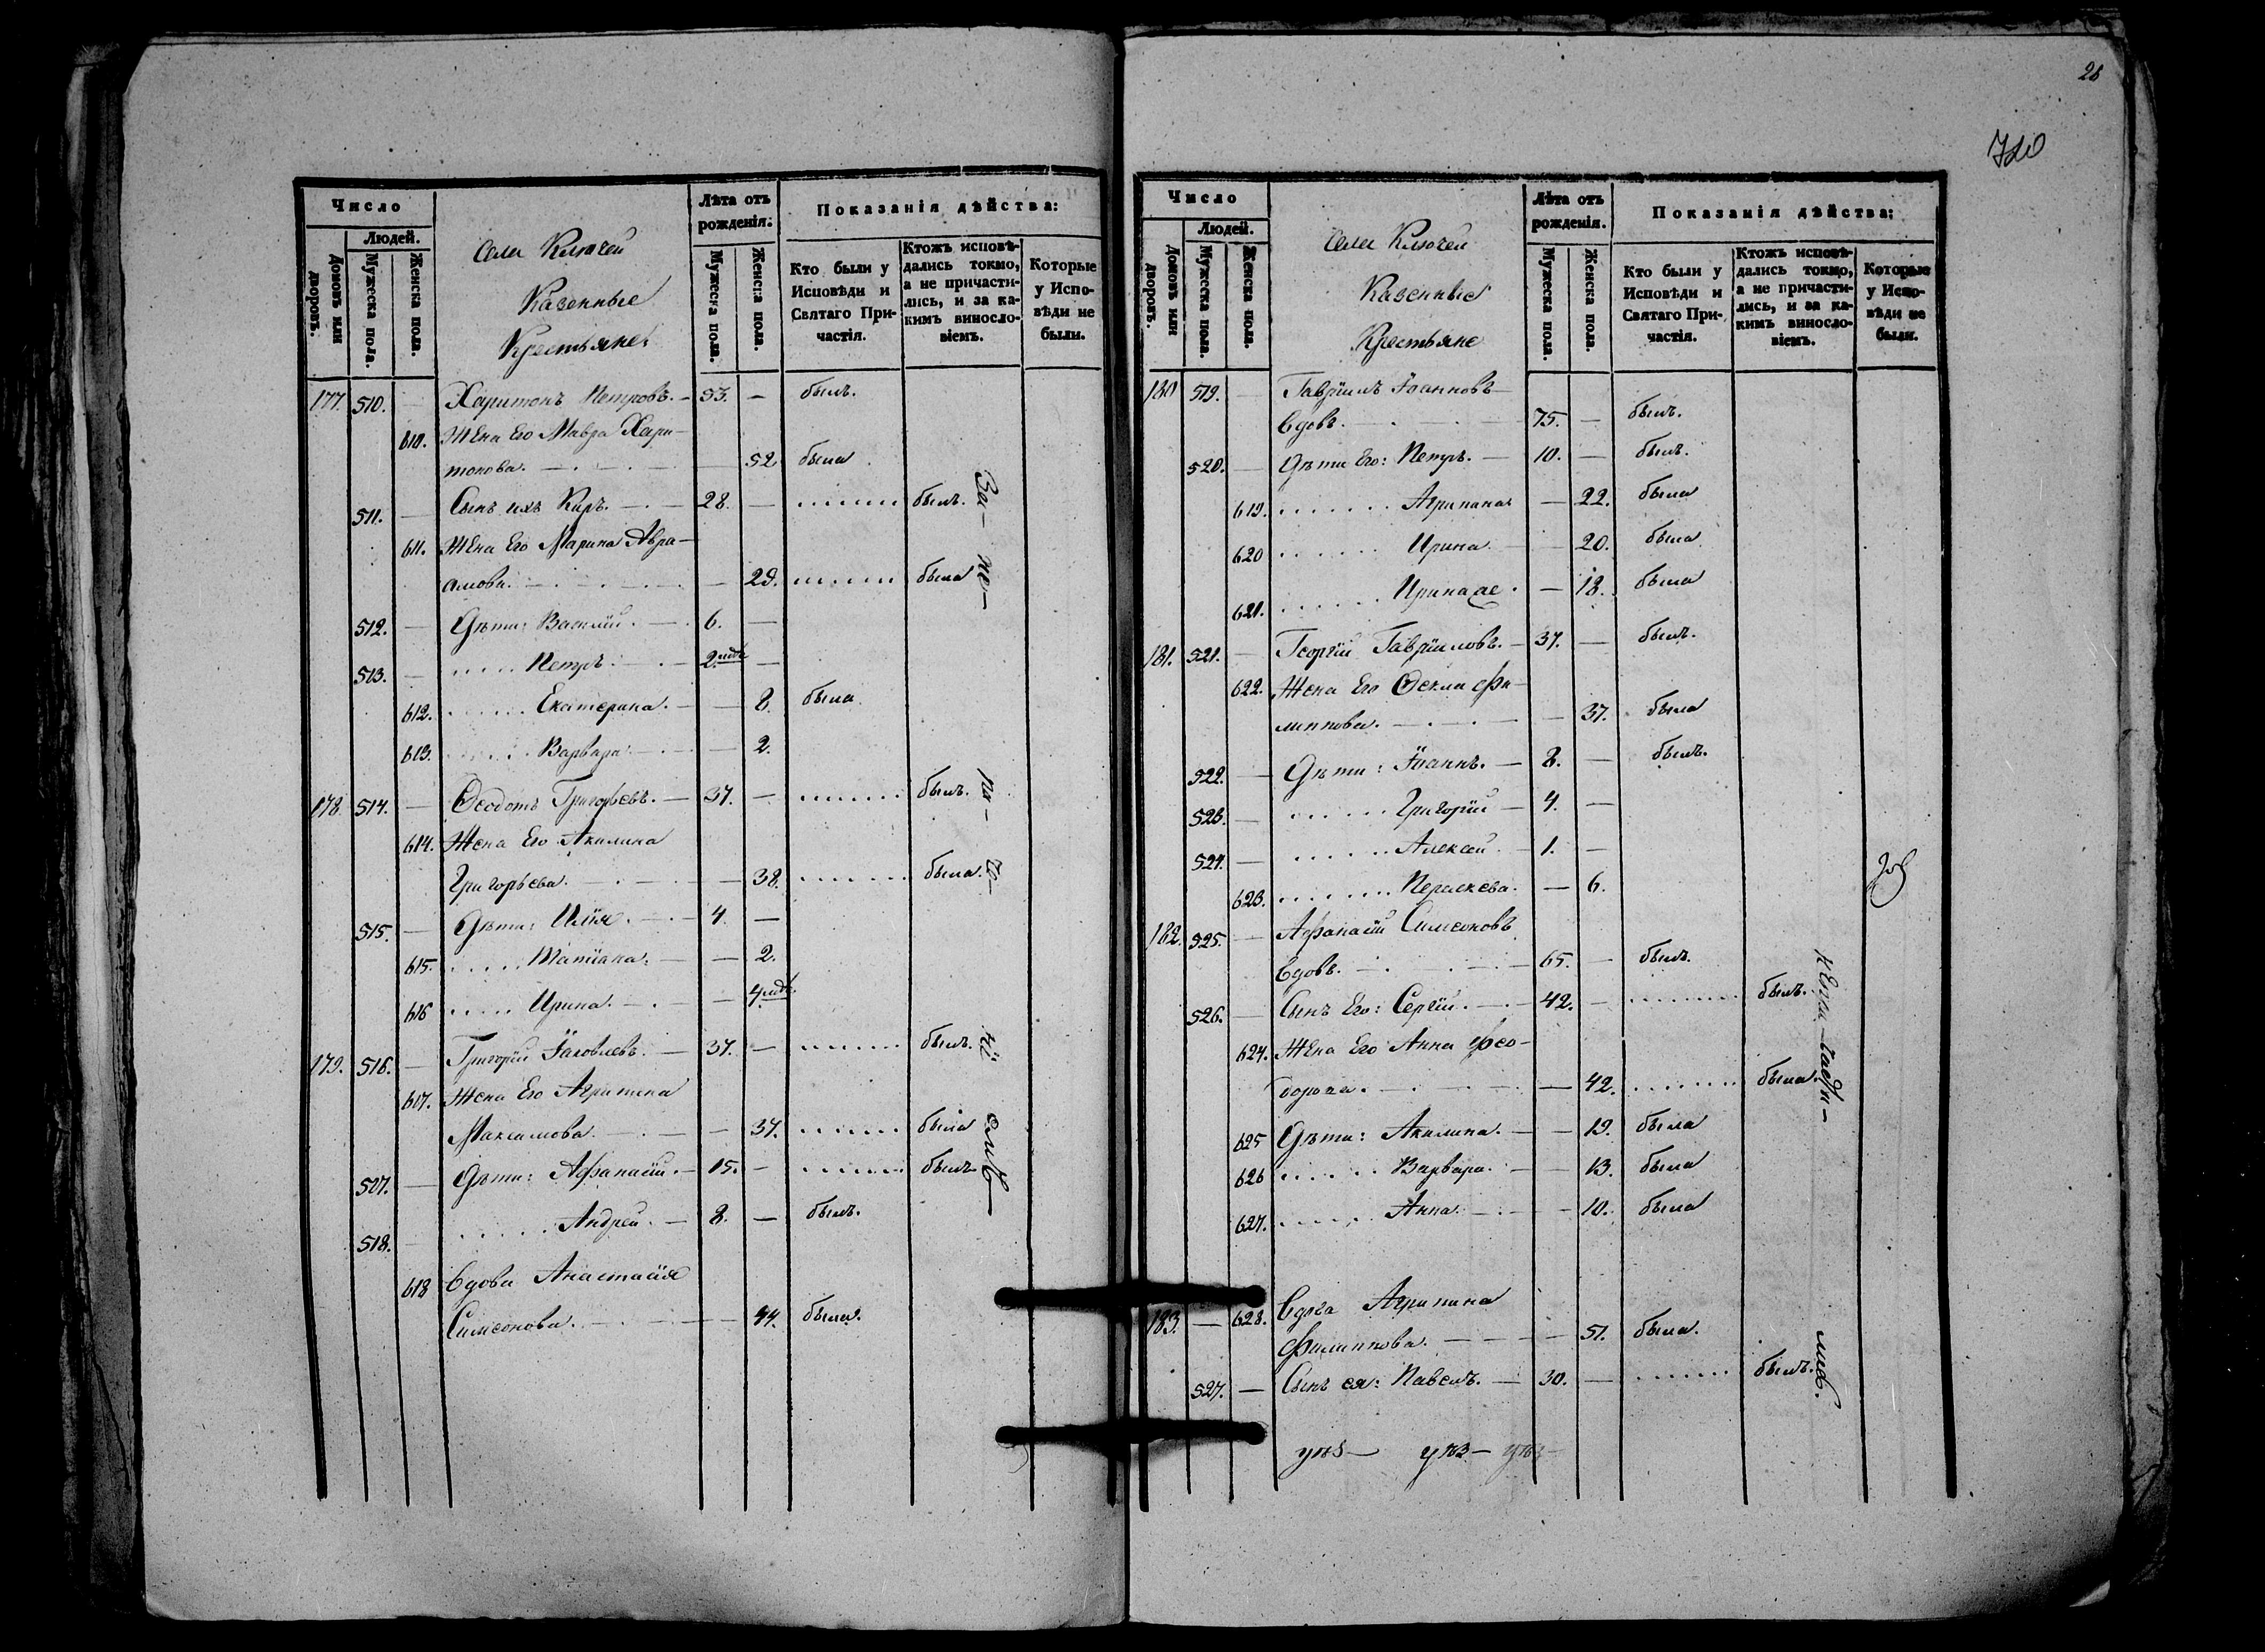 Число
Людей.
Домовъ или дворовъ.
Мужеска пола.
Женска пола.
Села Ключей
Казенные
Крестьяне
Лѣта отъ рожденія:
Мужеска пола.
Женска пола.
Показанія дѣйства:
Кто были у Исповѣди и Святаго Причастія.
Ктожъ исповѣдались токмо, а не причастились, и за какимъ винословіемъ.
Которые у Исповѣди не были.
177. 510. — Харитонъ Петровъ. — 53. — былъ.
610. Жена Его Мавра Хари-
тонова. — 52 была
511. — Сынъ ихъ Киръ. — 28. — былъ.
611. Жена Его Марина Авра-
амова. — 29. была
512. — Дѣти: Василій. — 6. —
513. — Петръ. — 2. —
612. Екатерина. — 8. была
613. Варвара. — 2.
178 514. — Ѳеодотъ Григорьевъ. — 37. — былъ.
614. Жена Его Акилина
Григорьева. — 38. была.
515. — Дѣти: Илія. — 4. —
615. Татіана. — 2.
616 Ирина. — 4
179. 516. — Григорій Іаковлевъ. — 37. — былъ.
617. Жена Его Агрипина
Максимова. — 37. была
517. — Дѣти: Афанасій. — 15. — былъ
518. — Андрей. — 8. — былъ.
618 Вдова Анастасія
Симеонова. — 44. была.
За- по-
26
720
Число
Людей.
Домовъ или дворовъ.
Мужеска пола.
Женска пола.
Села Ключей
Казенные
Крестьяне
Лѣта отъ рожденія.
Мужеска пола.
Женска пола.
Показанія дѣйства:
Кто были у Исповѣди и Святаго Причастія.
Ктожъ исповѣдались токмо, а не причастились, и за какимъ винословіемъ.
Которые у Исповѣди не были.
180 519. — Гавріилъ Іоанновъ
вдовъ. — 75. — былъ.
520. — Дѣти Его: Петръ. — 10. — былъ.
619. Агрипина — 22. была
620 Ирина. — 20. была
621. — 18. была
181. 521. — Георгій Гавріиловъ. — 37. — былъ.
622. Жена Его Ѳекла Фи-
липпова. — 37. была
522. — Дѣти: Іоаннъ. — 8. — былъ.
523. — Григорій — 4. —
524. — Алексѣй. — 1. —
623. Параскева. — 6.
182. 525. — Афанасій Симеоновъ
вдовъ. — 65. — былъ.
526. — Сынъ Его: Сергій. — 42. — былъ.
624. Жена Его Анна Фео-
дорова. — 42. была.
625 Дѣти: Акилина. — 19. была
626 Варвара. — 13. была
627. Анна. — 10. была
183. — 628. Вдова Агрипина
Филиппова. — 51. была.
527. — Сынъ ея: Павелъ. — 30. — былъ.